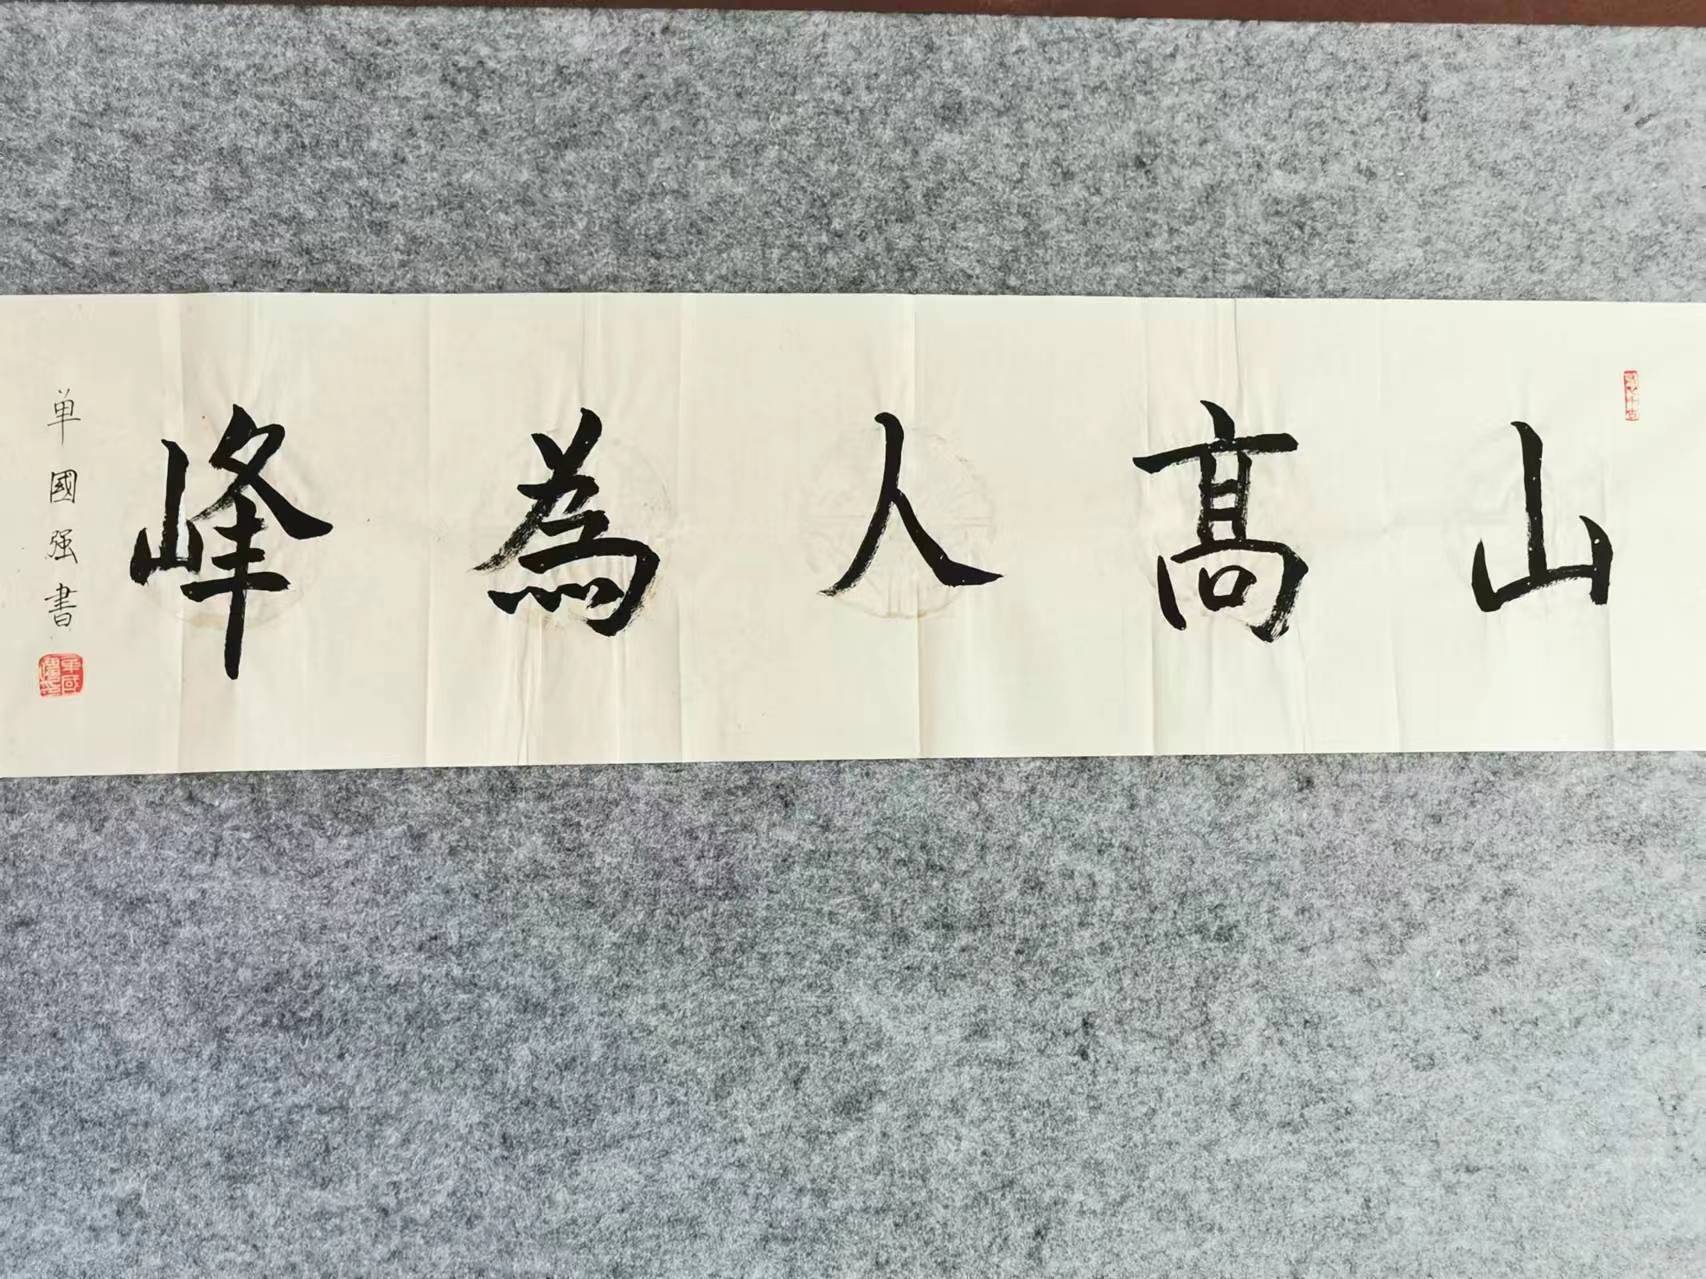 山髙人為峰
单國强書